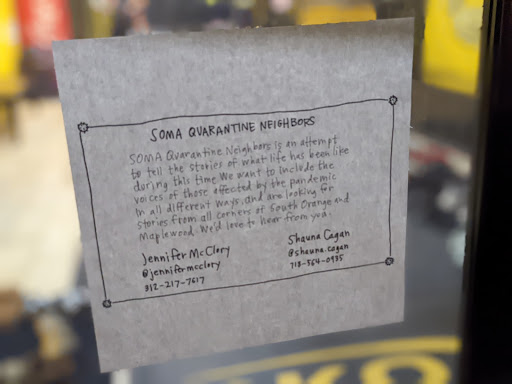 SOMA QUARANTINE NEIGHBORS
SOMA Quarantine Neighbors is an attempt
to tell the stories of what life has been like
during this time. We want to include the
voices of those affected by the pandemic
in all different ways, and are looking for
stories from all corners of South Orange and
Maplewood. We'd love to hear from you.
Jennifer McClory
@jennifermcclory
312-217-7617
Shauna Cagan
@shauna.cagan
718-564-0935